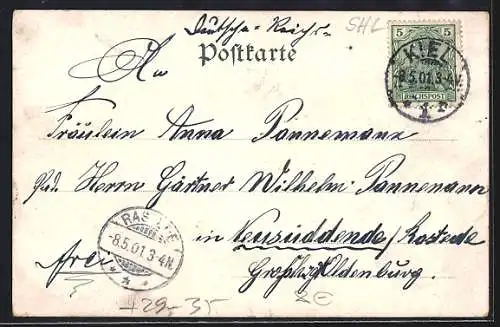 Deutsche-Reichs-
SHL
Postkarte
5 5
KIEL
8.5.01.3-4N.
REICHSPOST
1 F
An
Fräulein Anna Pannemann
Herrn Gärtner Wilhelm Pannemann
in Neusüddende/Rastede
frei
RASTEDE
8.5.01.3-4N.
Oldenburg.
29-35